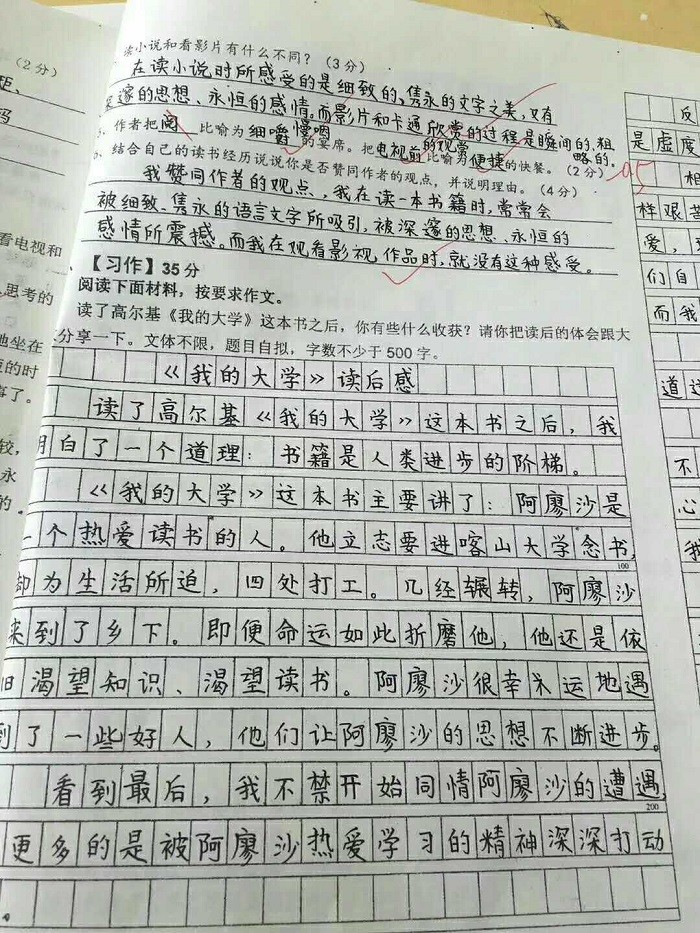 (2分)
读小说和看影片有什么不同？(3分)
在读小说时所感受的是细致的、隽永的文字之美，又有
邃的思想、永恒的感情。而影片和卡通欣赏的过程是瞬间的、粗略的。
5、作者把阅 比喻为细嚼慢咽的宴席。把电视前的观赏比喻为便捷的快餐。(2分)
6、结合自己的读书经历说说你是否赞同作者的观点，并说明理由。(4分)
我赞同作者的观点、我在读一本书籍时，常常会
被细致、隽永的语言文字所吸引，被深邃的思想、永恒的
感情所震撼。而我在观看影视作品时，就没有这种感受。
【习作】35分
阅读下面材料，按要求作文。
读了高尔基《我的大学》这本书之后，你有些什么收获？请你把读后的体会跟大
分享一下。文体不限，题目自拟，字数不少于500字。
《我的大学》读后感
读了高尔基《我的大学》这本书之后，我
明白了一个道理：书籍是人类进步的阶梯。
《我的大学》这本书主要讲了：阿廖沙是
一个热爱读书的人。他立志要进喀山大学念书，
100
却为生活所迫，四处打工。几经辗转，阿廖沙
来到了乡下。即便命运如此折磨他，他还是依
旧渴望知识、渴望读书。阿廖沙很幸运地遇
到了一些好人，他们让阿廖沙的思想不断进步。
看到最后，我不禁开始同情阿廖沙的遭遇，
200
更多的是被阿廖沙热爱学习的精神深深打动
。
看电视和
思考的
地坐在
的时
事了。
较，
永
的。
反
是虚度
相
样艰苦
爱，
们自
而我
道这
不
心
我